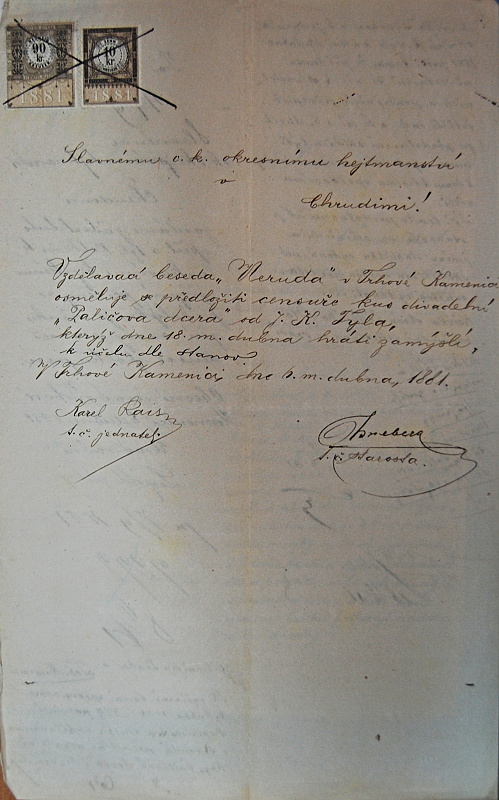 90 kr
1881
10 kr
1881
Slavnému c. k. okresnímu hejtmanství
v
Chrudimi!
Vzdělavací beseda „Neruda“ v Trhové Kamenici
osměluje se předložiti censuře kus divadelní
„Paličova dcera“ od J. K. Tyla,
kterýž dne 18. m. dubna hráti zamýšlí,
k účelu dle stanov.
V Trhové Kamenici, dne 6. m. dubna, 1881.
Karel Rais
t. č. jednatel.
t. č. starosta.